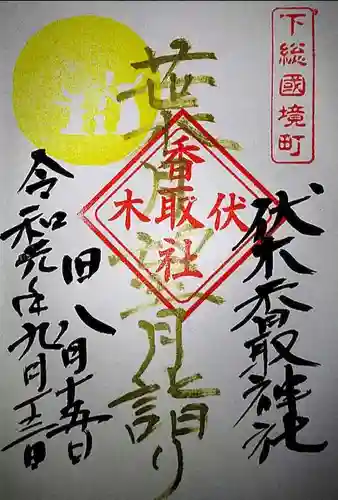 下総國境町
伏木香取神社
伏木
香取社
葉
月詣り
旧八月十五日
令和元年九月十三日